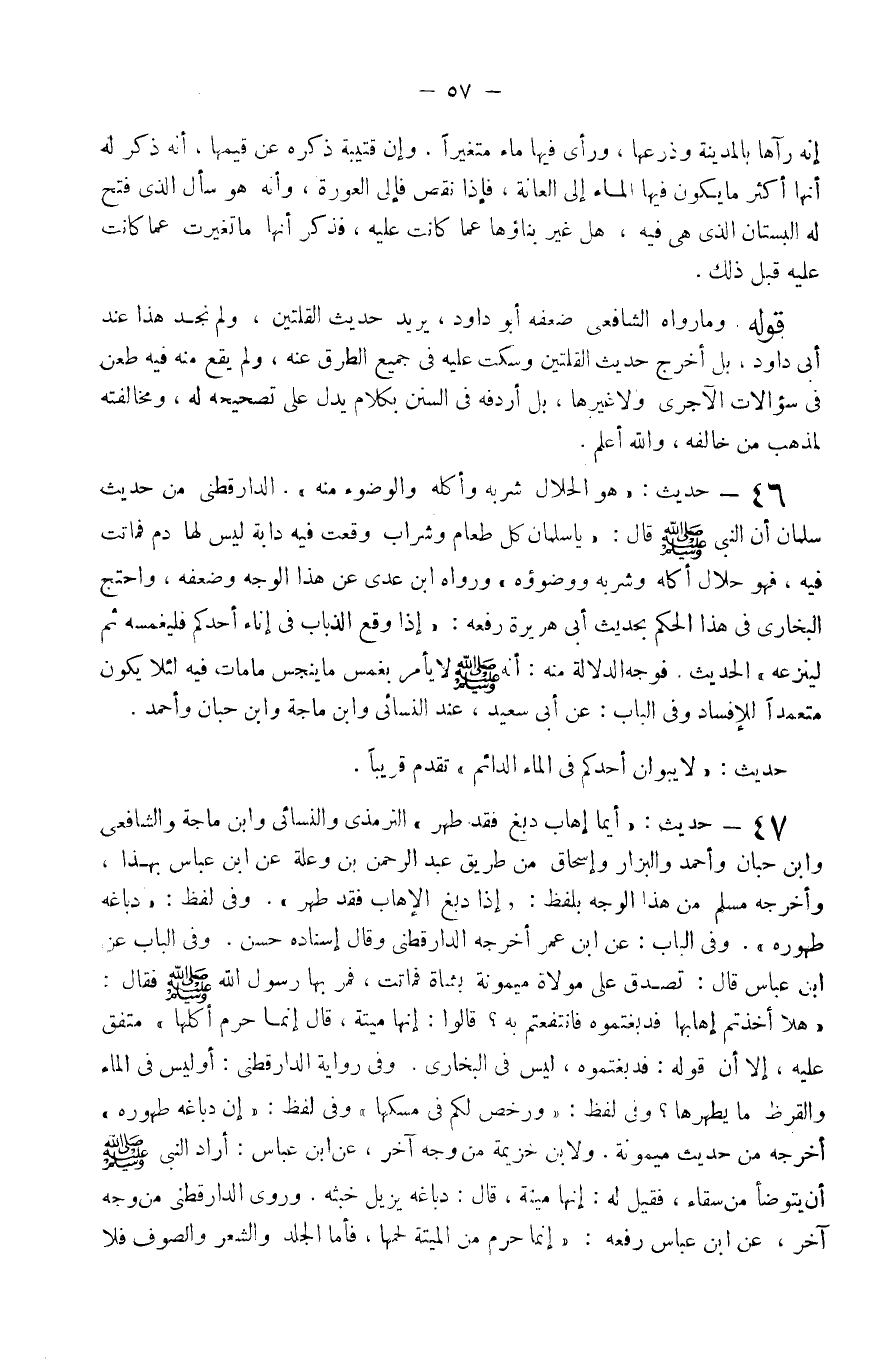 — ٥٧ —
إنه رآها بالمدينة وذرعها ، ورأى فيها ماء متغيراً . وإن قتيبة ذكره عن قيمها ، أنه ذكر له
أنها أكثر مايكون فيها الماء إلى العانة ، فإذا نقص فإلى العورة ، وأنه هو سأل الذى فتح
له البستان الذى هى فيه ، هل غير بناؤها عما كانت عليه ، فذكر أنها ماتغيرت عما كانت
عليه قبل ذلك .
قوله . ومارواه الشافعى ضعفه أبو داود ، يريد حديث القلتين ، ولم نجد هذا عند
أبى داود ، بل أخرج حديث القلتين وسكت عليه فى جميع الطرق عنه ، ولم يقع منه فيه طعن
فى سؤالات الآجرى ولاغيرها ، بل أردفه فى السنن بكلام يدل على تصحيحه له ، ومخالفته
لمذهب من خالفه ، والله أعلم .
٤٦ — حديث : « هو الحلال شربه وأكله والوضوء منه » . الدارقطنى من حديث
سلمان أن النبى ﷺ قال : « ياسلمان كل طعام وشراب وقعت فيه دابة ليس لها دم فماتت
فيه ، فهو حلال أكله وشربه ووضوؤه » ورواه ابن عدى عن هذا الوجه وضعفه ، واحتج
البخارى فى هذا الحكم بحديث أبى هريرة رفعه : « إذا وقع الذباب فى إناء أحدكم فليغمسه ثم
لينزعه » الحديث . فوجه الدلالة منه : أنه ﷺ لا يأمر بغمس ماينجس مامات فيه لئلا يكون
متعمداً للإفساد وفى الباب : عن أبى سعيد ، عند النسائى وابن ماجة وابن حبان وأحمد .
حديث : « لايبولن أحدكم فى الماء الدائم » تقدم قريباً .
٤٧ — حديث : « أيما إهاب دبغ فقد طهر » الترمذى والنسائى وابن ماجة والشافعى
وابن حبان وأحمد والبزار وإسحاق من طريق عبد الرحمن بن وعلة عن ابن عباس بهذا ،
وأخرجه مسلم من هذا الوجه بلفظ : « إذا دبغ الإهاب فقد طهر » . وفى لفظ : « دباغه
طهوره » . وفى الباب : عن ابن عمر أخرجه الدارقطنى وقال إسناده حسن . وفى الباب عن
ابن عباس قال : تصدق على مولاة ميمونة بشاة فماتت ، فمر بها رسول الله ﷺ فقال :
« هلا أخذتم إهابها فدبغتموه فانتفعتم به ؟ قالوا : إنها ميتة ، قال إنما حرم أكلها » متفق
عليه ، إلا أن قوله : فدبغتموه ، ليس فى البخارى . وفى رواية الدارقطنى : أوليس فى الماء
والقرظ ما يطهرها ؟ وفى لفظ : « ورخص لكم فى مسكها » وفى لفظ : « إن دباغه طهوره »
أخرجه من حديث ميمونة . ولابن خزيمة من وجه آخر ، عن ابن عباس : أراد النبى ﷺ
أن يتوضأ من سقاء ، فقيل له : إنها ميتة ، قال : دباغه يزيل خبثه . وروى الدارقطنى من وجه
آخر ، عن ابن عباس رفعه : « إنما حرم من الميتة لحمها ، فأما الجلد والشعر والصوف فلا